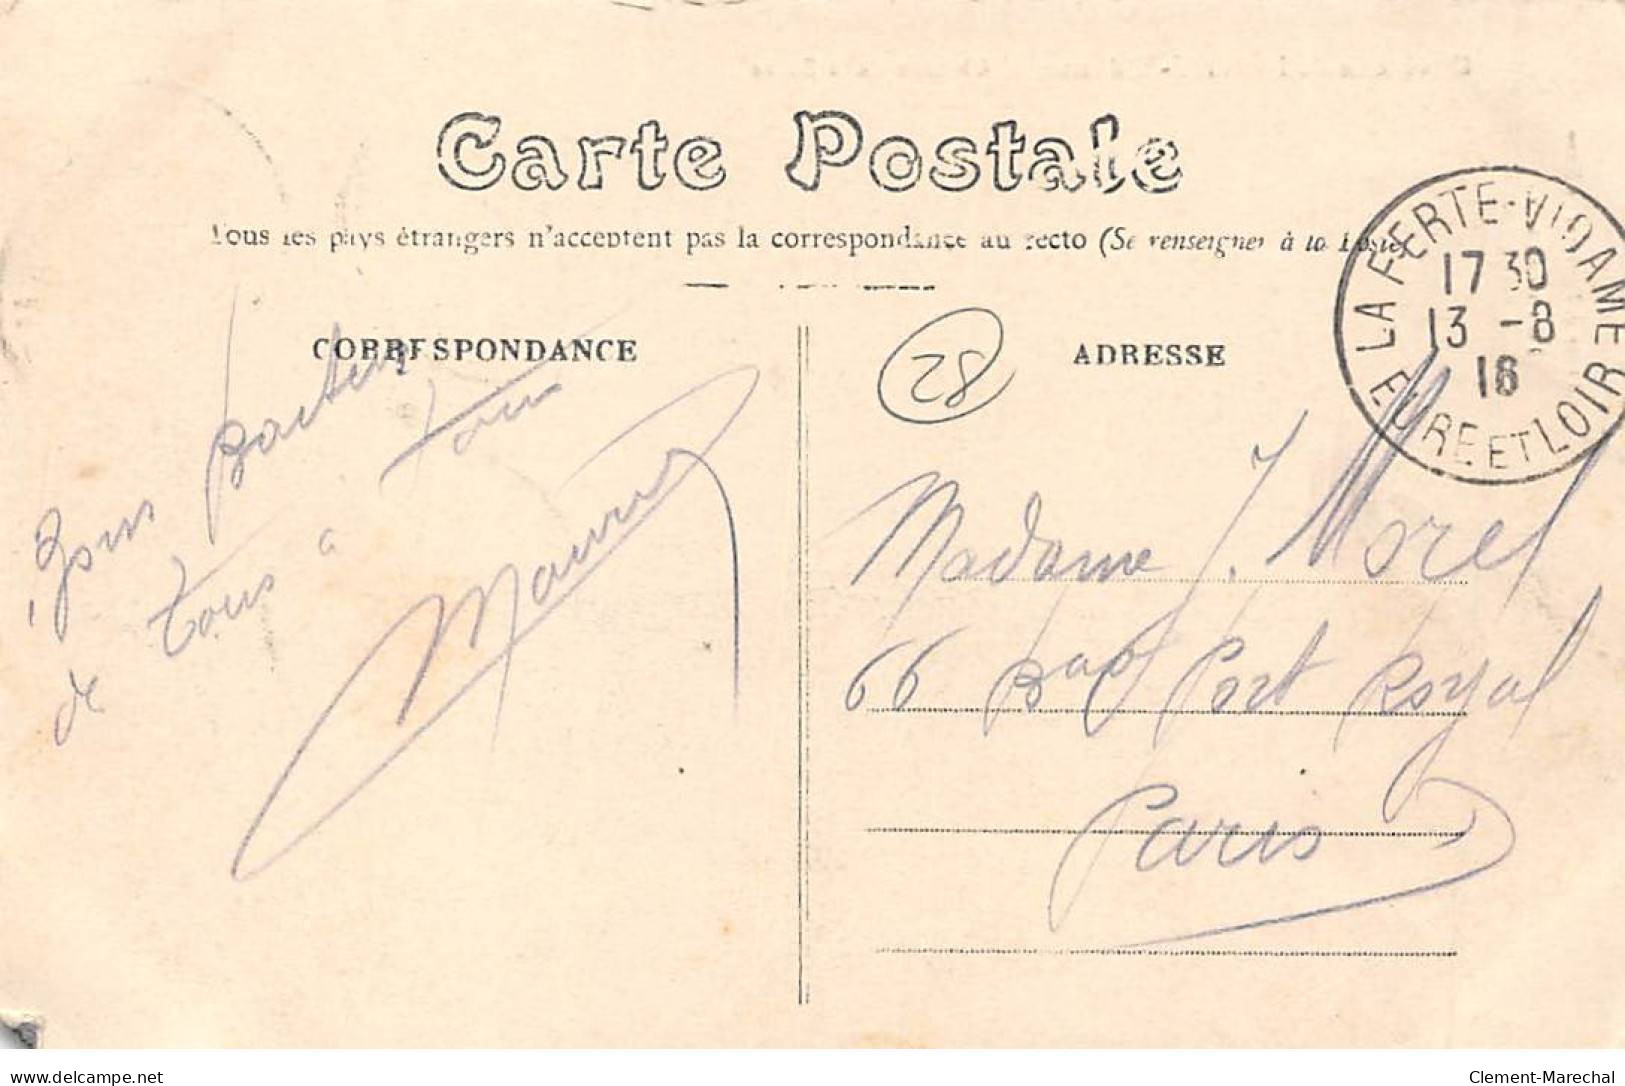 Carte Postale
Tous les pays étrangers n'acceptent pas la correspondance au recto (Se renseigner à la Poste)
CORRESPONDANCE
ADRESSE
82
LA FERTE-VIDAME
17 30
13 -8
16
EURE ET LOIR
Bons
de tous a tous
Madame J. Morel
66 Port Royal
Paris
delcampe.net
Clement-Marechal